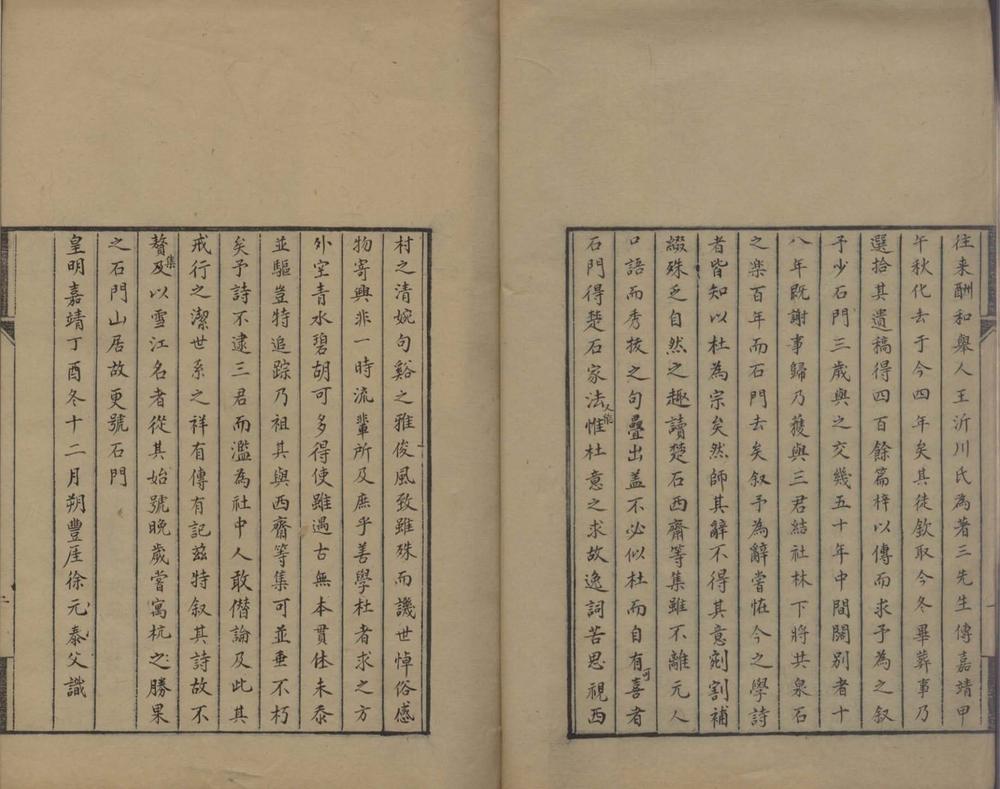 往来酬和舉人王沂川氏為著三先生傳嘉靖甲
午秋化去于今四年矣其徒欽取今冬畢葬事乃
選拾其遺稿得四百餘篇梓以傳而求予為之叙
予少石門三歲與之交幾五十年中間闊別者十
八年既謝事歸乃獲與三君結社林下將共泉石
之楽百年而石門去矣叙予為辭嘗恠今之學詩
者皆知以杜為宗矣然師其辭不得其意剜割補
綴殊乏自然之趣讀楚石西齋等集雖不離元人
口語而秀拔之句疊出盖不必似杜而自有可喜者
石門得楚石家法惟杜意之求故逸詞苦思視西
村之清婉句谿之雅俊風致雖殊而譏世悼俗感
物寄興非一時流輩所及庶乎善學杜者求之方
外空青水碧胡可多得使雖過古無本貫休未忝
並驅豈特追踪乃祖其與西齋等集可並垂不朽
矣予詩不逮三君而濫為社中人敢僭論及此其
戒行之潔世系之祥有傳有記茲特叙其詩故不
贅及集以雪江名者從其始號晚歲嘗寓杭之勝果
之石門山居故更號石門
皇明嘉靖丁酉冬十二月朔豐厓徐元泰父識